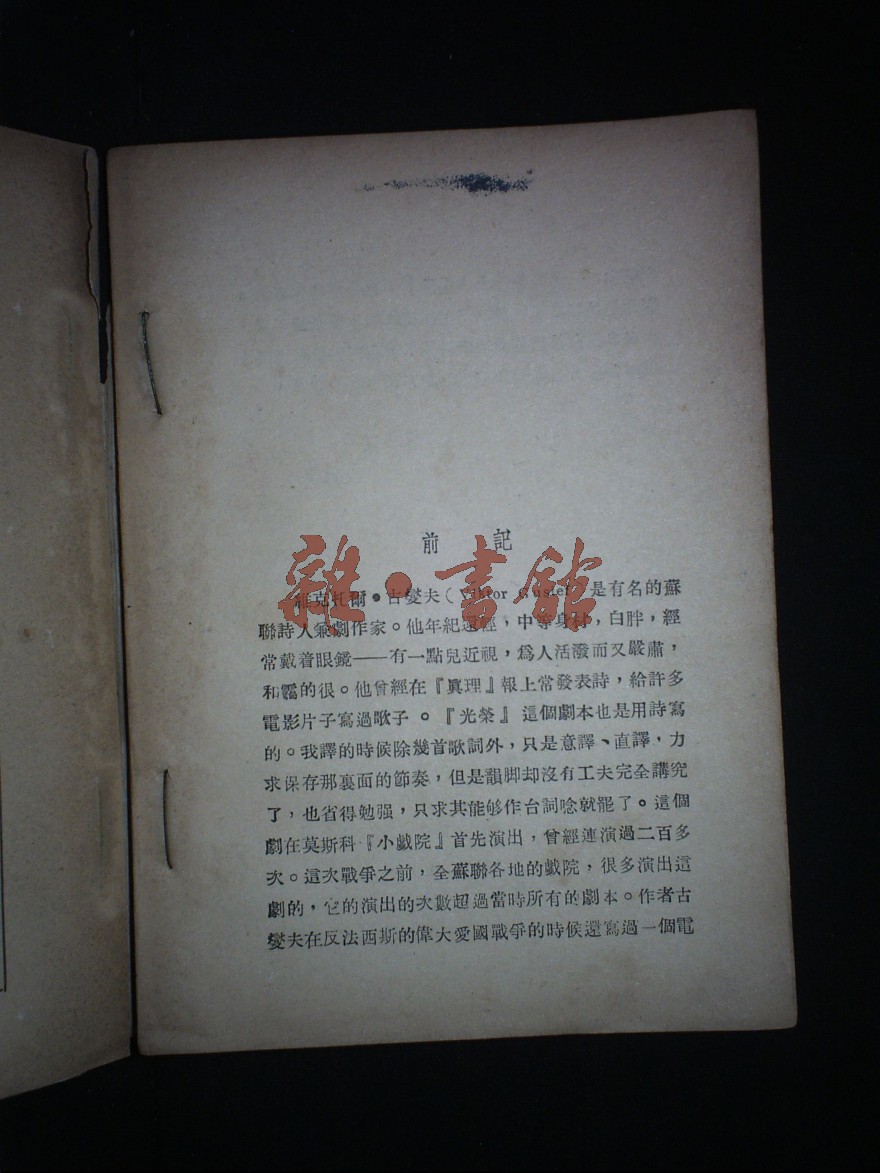 前記
維克托爾•古燮夫(Viktor Gusief)是有名的蘇
聯詩人兼劇作家。他年紀還輕,中等身材,白胖,經
常戴着眼鏡——有一點兒近視,爲人活潑而又嚴肅,
和靄的很。他曾經在『眞理』報上常發表詩,給許多
電影片子寫過歌子。『光榮』這個劇本也是用詩寫
的。我譯的時候除幾首歌詞外,只是意譯、直譯,力
求保存那裏面的節奏,但是韻脚却沒有工夫完全講究
了,也省得勉强,只求其能够作台詞唸就罷了。這個
劇在莫斯科『小戱院』首先演出,曾經連演過二百多
次。這次戰爭之前,全蘇聯各地的戱院,很多演出這
劇的,它的演出的次數超過當時所有的劇本。作者古
燮夫在反法西斯的偉大愛國戰爭的時候還寫過一個電
雜•書館